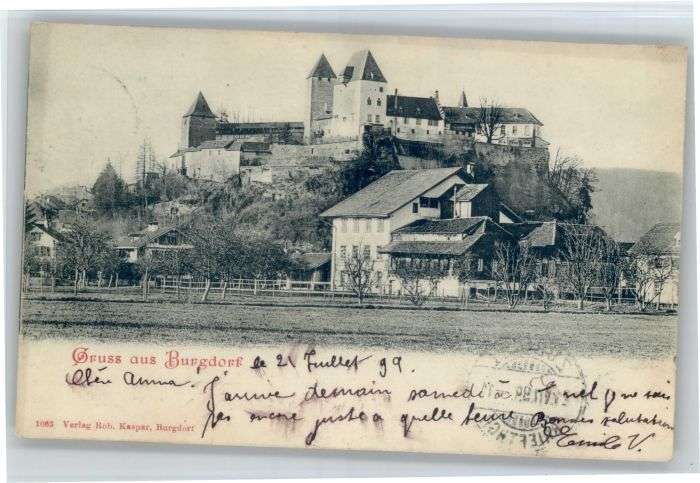 Gruss aus Burgdorf le 21 Juillet 99
Chère Anna. J'arrive demain samedi à
mais ne sais
pas encore juste a quelle heure Bonnes salutation
V.
1063 Verlag Rob. Kaspar, Burgdorf